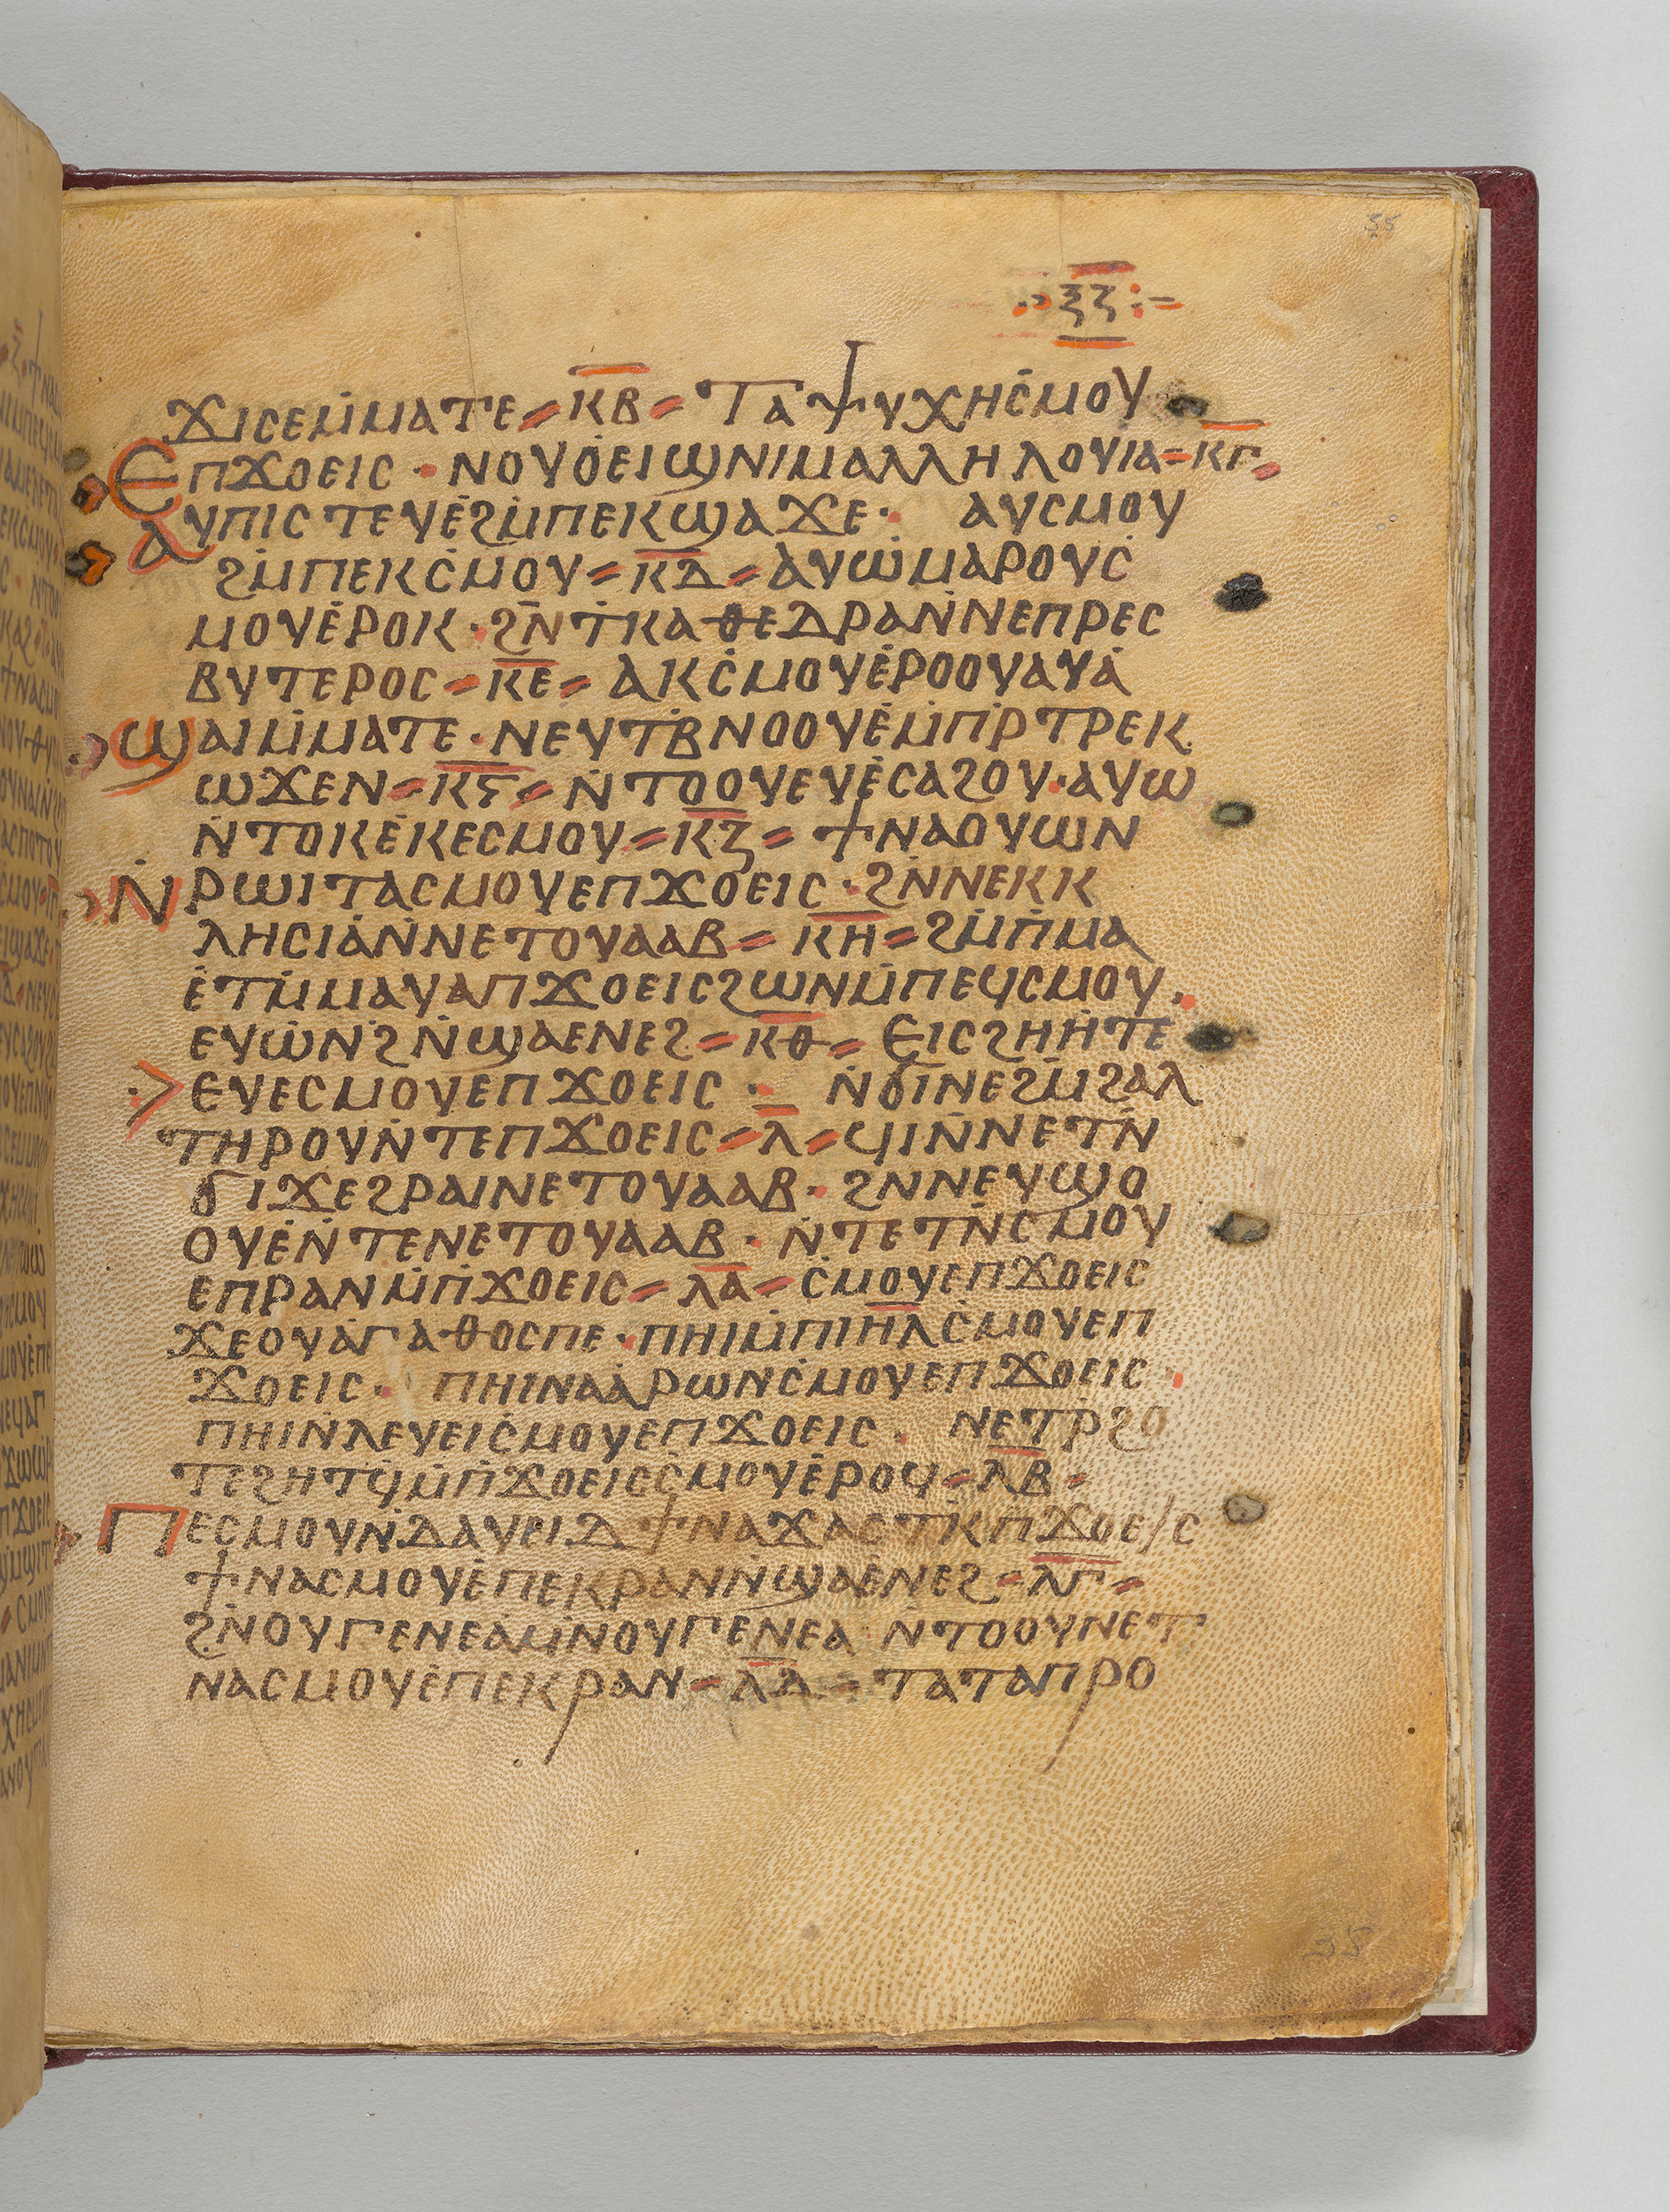 35
ⲝⲍ
ϫⲓⲥⲉⲙ̇ⲙⲁⲧⲉ = ⲕ̅ⲃ̅ = ⲧⲁⲯⲩⲭⲏⲥ̇ⲙⲟⲩ
ⲉⲡϫⲟⲉⲓⲥ · ⲛⲟⲩⲟ̇ⲉⲓϣⲛⲓⲙⲁⲗⲗⲏⲗⲟⲩⲓⲁ = ⲕ̅ⲅ̅ =
ⲁⲩⲡⲓⲥⲧⲉⲩⲉ̇ϩⲙ̇ⲡⲉⲕϣⲁϫⲉ · ⲁⲩⲥⲙⲟⲩ
ϩⲙ̇ⲡⲉⲕⲥ̇ⲙⲟⲩ = ⲕ̅ⲇ̅ = ⲁⲩⲱ̇ⲙⲁⲣⲟⲩⲥ̇
ⲙⲟⲩⲉ̇ⲣⲟⲕ · ϩⲛ̇ⲧⲕⲁⲑⲉⲇⲣⲁⲛ̇ⲛⲉⲡⲣⲉⲥ
ⲃⲩⲧⲉⲣⲟⲥ = ⲕ̅ⲉ̅ = ⲁⲕⲥ̇ⲙⲟⲩⲉ̇ⲣⲟⲟⲩⲁⲩⲁ̇
ϣⲁⲓⲙ̇ⲙⲁⲧⲉ · ⲛⲉⲩⲧⲃ̇ⲛⲟⲟⲩⲉ̇ⲙ̇ⲡⲣ̇ⲧⲣⲉⲕ
ⲱϫⲉⲛ = ⲕ̅ⲋ̅ = ⲛ̇ⲧⲟⲟⲩⲉⲩⲉ̇ⲥⲁϩⲟⲩ · ⲁⲩⲱ
ⲛ̇ⲧⲟⲕⲉ̇ⲕⲉⲥⲙⲟⲩ = ⲕ̅ⲍ̅ = ϯⲛⲁⲟⲩⲱⲛ
ⲛ̇ⲣⲱⲓⲧⲁⲥⲙⲟⲩⲉⲡϫⲟⲉⲓⲥ · ϩⲛ̇ⲛⲉⲕⲕ
ⲗⲏⲥⲓⲁ̇ⲛ̇ⲛⲉⲧⲟⲩⲁⲁⲃ = ⲕ̅ⲏ̅ = ϩⲙ̇ⲡ̇ⲙⲁ
ⲉ̇ⲧⲙ̇ⲙⲁⲩⲁⲡϫⲟⲉⲓⲥϩⲱⲛⲙ̇ⲡⲉϥⲥⲙⲟⲩ ·
ⲉⲩⲱ̇ⲛϩ̇ⲛ̇ϣⲁⲉⲛⲉϩ = ⲕ̅ⲑ̅ = ⲉⲓⲥϩⲏⲏ̇ⲧⲉ
ⲉⲩⲉⲥⲙⲟⲩⲉⲡϫⲟⲉⲓⲥ · ⲛ̇ϭⲓⲛⲉϩⲙ̇ϩⲁⲗ
ⲧⲏⲣⲟⲩⲛ̇ⲧⲉⲡϫⲟⲉⲓⲥ = ⲗ̅ = ϥⲓⲛ̇ⲛⲉⲧⲛ̇
ϭⲓϫⲉϩⲣⲁⲓⲛⲉⲧⲟⲩⲁⲁⲃ · ϩⲛⲛⲉⲩϣⲟ
ⲟⲩⲉ̇ⲛ̇ⲧⲉⲛⲉⲧⲟⲩⲁⲁⲃ · ⲛ̇ⲧⲉⲧⲛ̇ⲥⲙⲟⲩ
ⲉⲡⲣⲁⲛⲙ̇ⲡ̇ϫⲟⲉⲓⲥ = ⲗ̅ⲁ̅ = ⲥ̇ⲙⲟⲩⲉⲡϫⲟⲉⲓⲥ
ϫⲉⲟⲩⲁ̇ⲅⲁⲑⲟⲥⲡⲉ · ⲡⲏⲓⲙ̇ⲡⲓⲏ̅ⲗ̅ⲥ̇ⲙⲟⲩⲉⲡ
ϫⲟⲉⲓⲥ · ⲡⲏⲓⲛⲁⲁ̇ⲣⲱⲛⲥ̇ⲙⲟⲩⲉⲡϫⲟⲉⲓⲥ ·
ⲡⲏⲓⲛ̇ⲗⲉⲩⲉⲓⲥ̇ⲙⲟⲩⲉⲡϫⲟⲉⲓⲥ · ⲛⲉⲧⲣ̇ϩⲟ
ⲧⲉϩⲏⲧϥ̇ⲙ̇ⲡ̇ϫⲟⲉⲓⲥⲥ̇ⲙⲟⲩⲉ̇ⲣⲟϥ = ⲗ̅ⲃ̅ =
ⲡⲉⲥⲙⲟⲩⲛ̇ⲇⲁⲩⲉⲓⲇϯⲛⲁϫⲁⲥⲧⲕ̇ⲡϫⲟⲉⲓⲥ
ϯⲛⲁⲥⲙⲟⲩⲉ̇ⲡⲉⲕⲣⲁⲛⲛ̇ϣⲁⲉ̇ⲛⲉϩ = ⲗ̅ⲅ̅ =
ϩⲛ̇ⲟⲩⲅⲉⲛⲉⲁ̇ⲙ̇ⲛⲟⲩⲅⲉⲛⲉⲁ ⲛ̇ⲧⲟⲟⲩⲛⲉⲧ
ⲛⲁⲥⲙⲟⲩⲉ̇ⲡⲉⲕⲣⲁⲛ = ⲗ̅ⲇ̅ = ⲧⲁⲧⲁⲡⲣⲟ
35